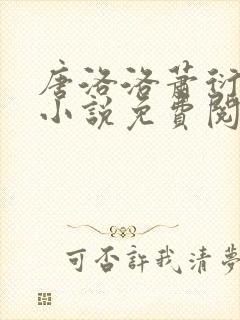 唐洛洛蕭衍
小說免費閱
可否許我清夢